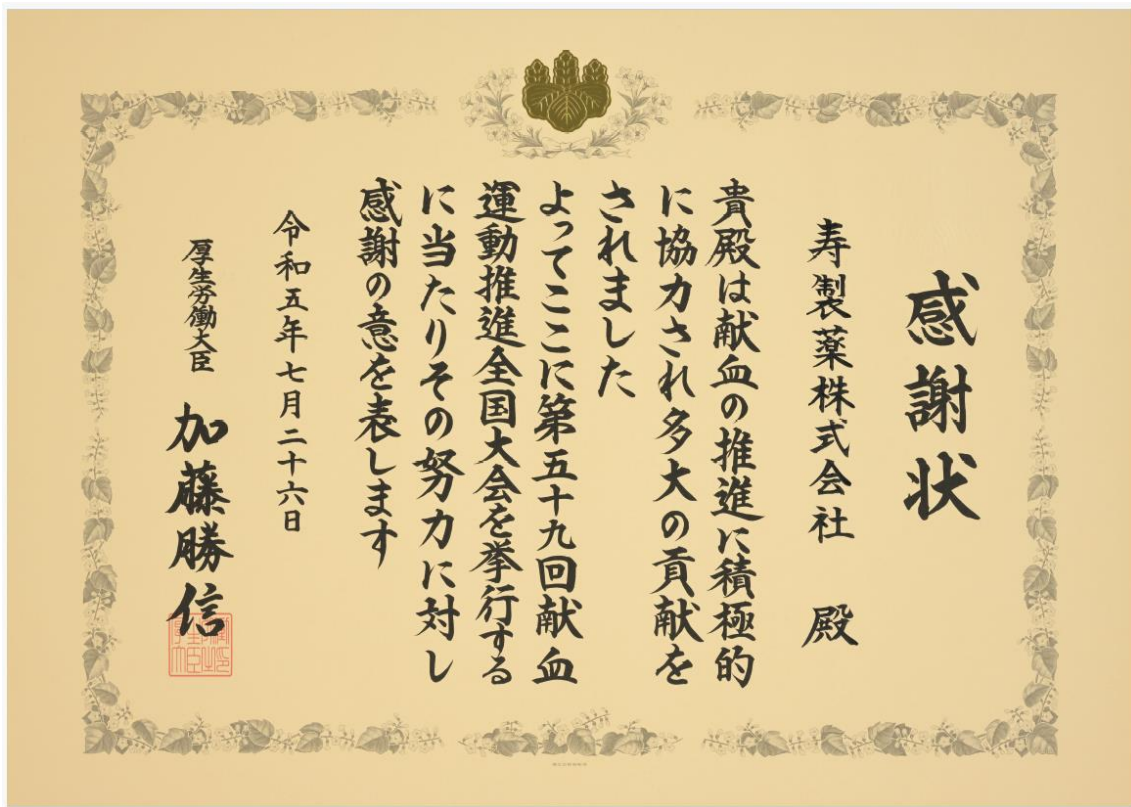 感謝状
寿製薬株式会社 殿
貴殿は献血の推進に積極的
に協力され多大の貢献を
されました
よってここに第五十九回献血
運動推進全国大会を挙行する
に当たりその努力に対し
感謝の意を表します
令和五年七月二十六日
厚生労働大臣 加藤勝信